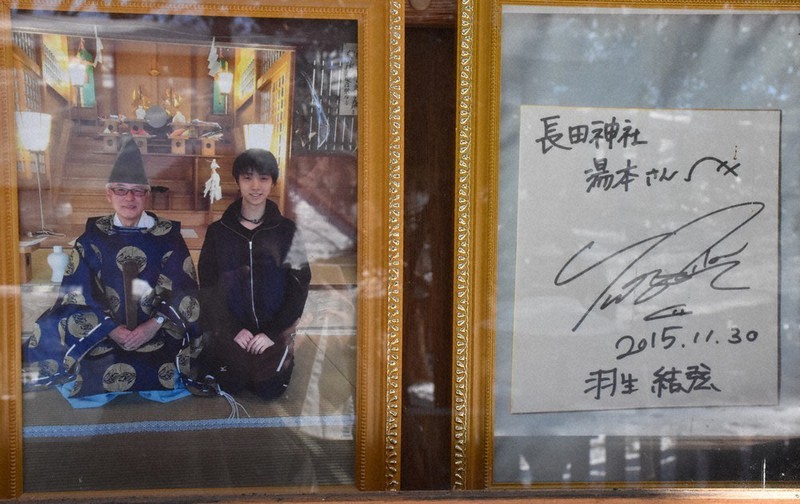 長田神社
湯本さんへ
2015.11.30
羽生結弦